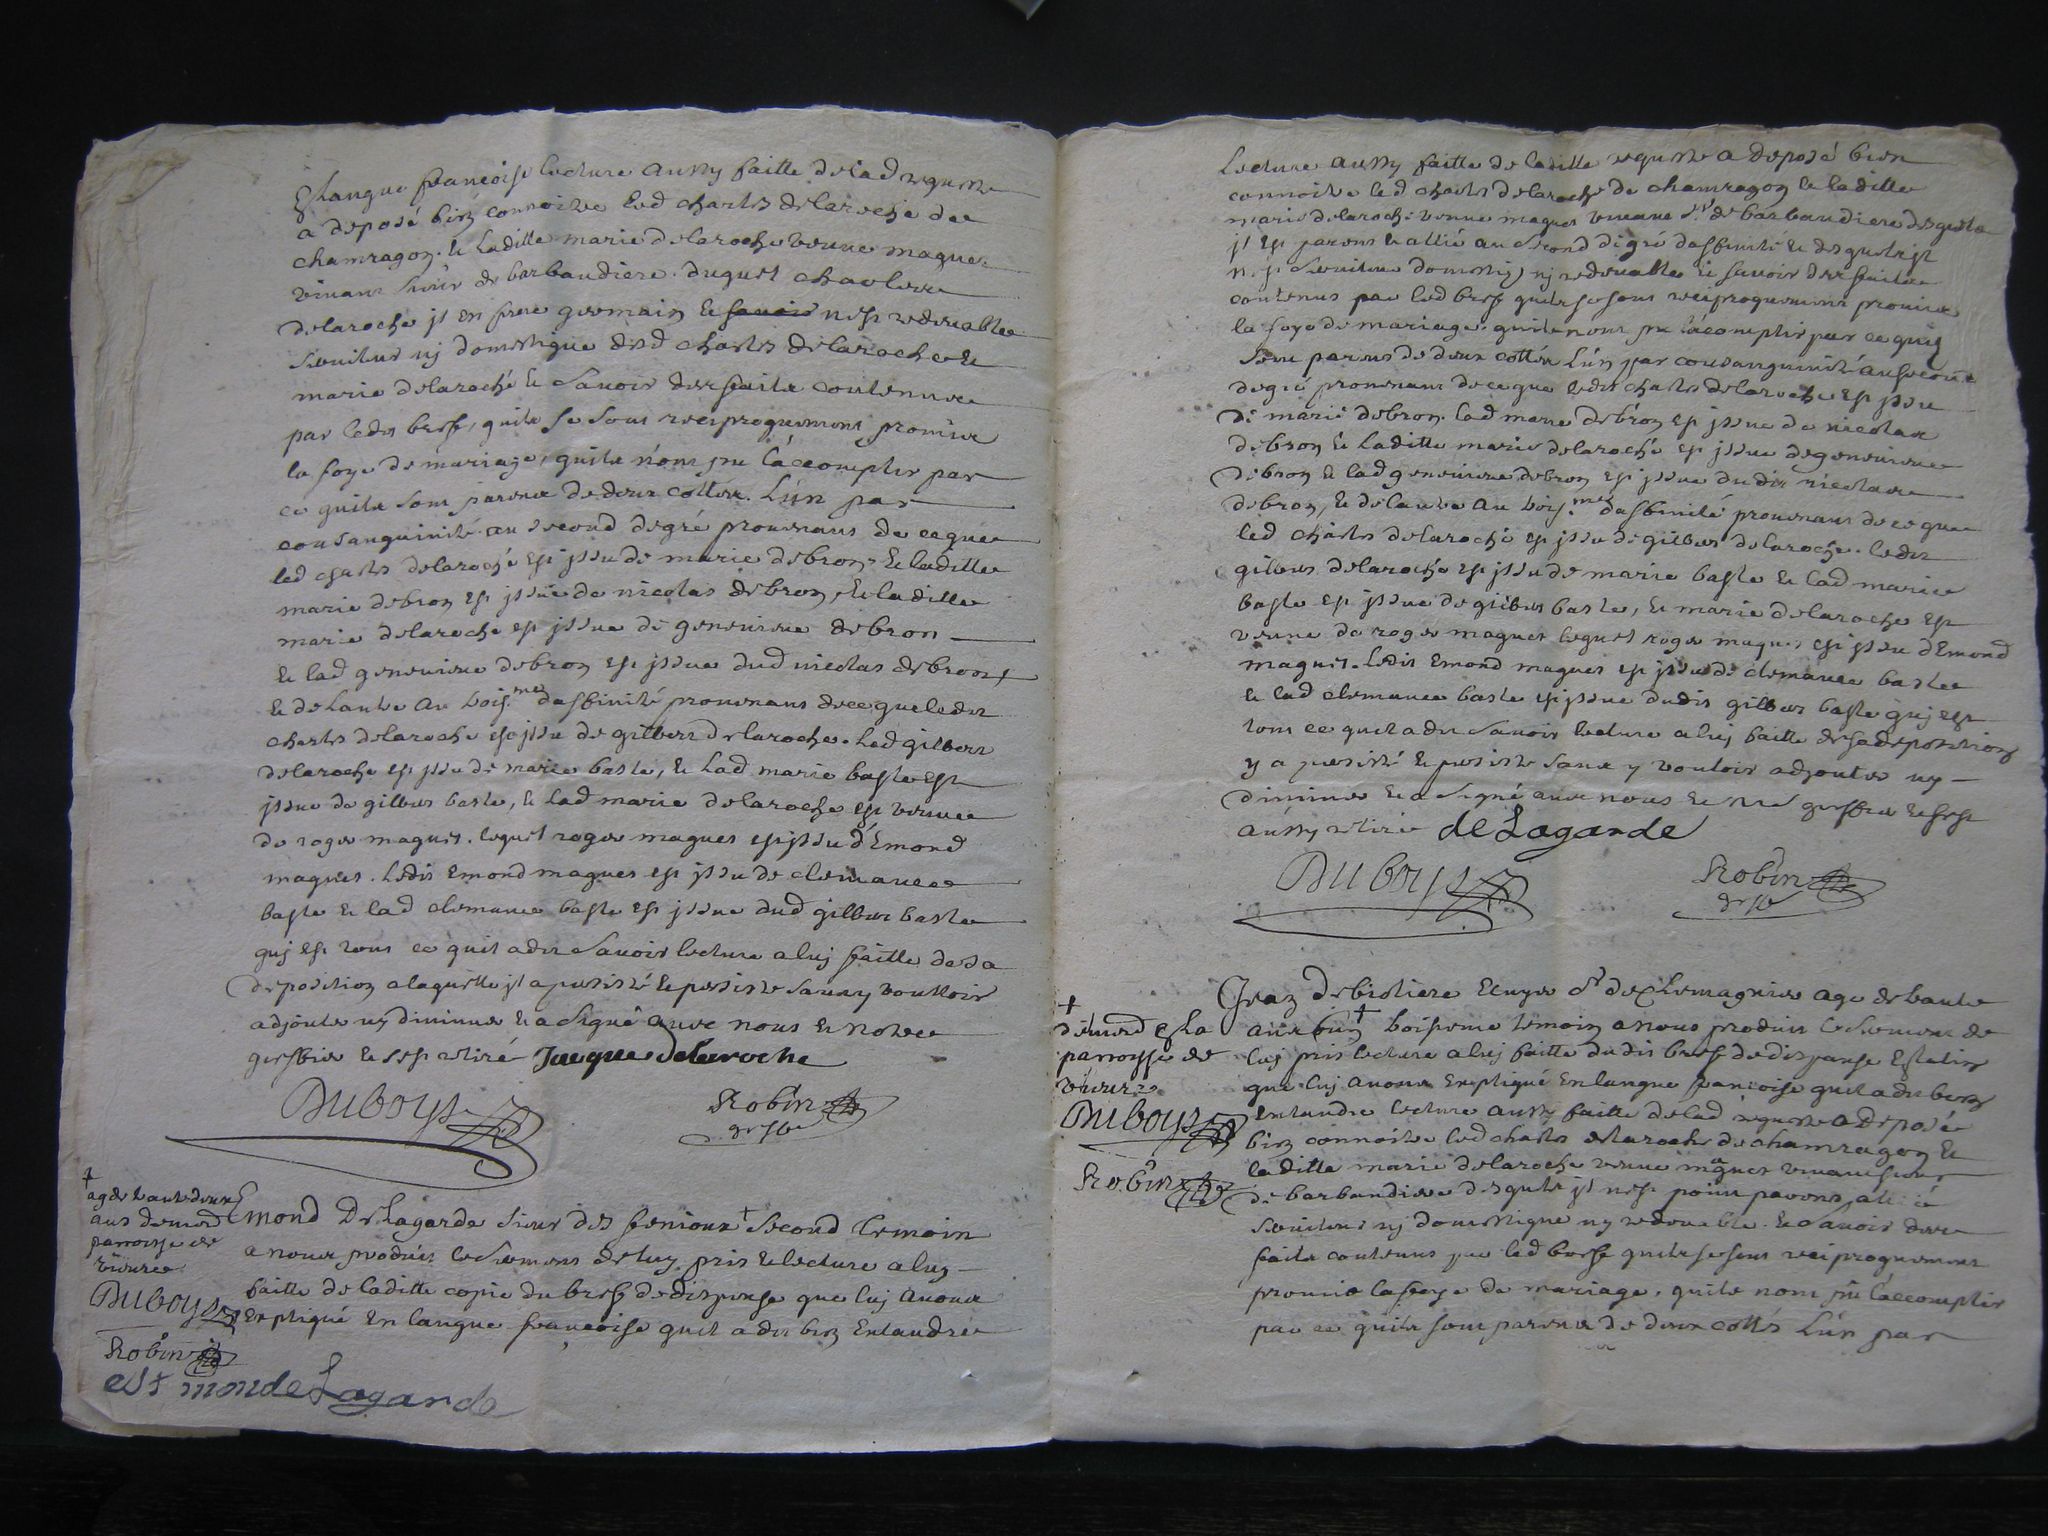 Langue francoise lecture aussy faitte de lad requeste
a deposé bien connoitre led charles delaroche de
chamragon. & Laditte marie delaroche veuve maques
vivant sieur de barbaudiere. duquel charles
delaroche jl est frere germain & savoir nest redevable
serviteur nj domestique desd charles delaroche &
marie delaroche & savoir des faits contenus
par ledit bref, quils se sont reciproquement promis
la foye de mariage, quils n'ont pu l'accomplir par
ce quils sont parens de deux cottés. L'un par
consanguinité au second degré provenant de ce que
led charles delaroche est jssu de marie debron. & laditte
marie debron est jssue de nicolas debron, & laditte
marie delaroche est jssue de genevieve debron
& lad genevieve debron est jssue dud nicolas debron,
& de lautre au trois.me d'affinité provenant de ce que ledit
charles delaroche est jssu de gilbert delaroche. Led gilbert
delaroche est jssu de marie basle, & lad marie basle est
jssue de gilbert basle, & lad marie delaroche est veuve
de roger maques. lequel roger maques est jssu d'Emond
maques. Ledit Emond maques est jssu de clemance
basle & lad clemance basle est jssue dud gilbert basle
quj est tout ce quil a dit savoir lecture a luj faitte de sa
deposition a laquelle jl a persisté & persiste sans y voulloir
adjouter nj diminuer & a signé avec nous & notre
greffier & sest retiré Jacques delaroche
Duboys
Robin
greffier
† agé de trante deux
ans demeurant
parroisse de
Duboys
Robin
Emond De Lagarde sieur des † second temoin
a nous produit le serment de luy pris & lecture a luy
faitte de laditte copie du bref de dispense que luj avons
Expliqué En langue francoise quil a dit bien Entandre
esmond de Lagarde
Lecture aussy faitte de laditte requeste a deposé bien
connoitre led charles delaroche de chamragon & laditte
marie delaroche veuve maques vivant sr de barbaudiere desquels
jl est parent & allié au second degré daffinité & desquels jl
n'est serviteur domestiq nj redevable & savoir des faits
contenus par led bref quils se sont reciproquement promis
la foye de mariage. quils nont pu l'accomplir par ce quils
sont parens de deux cottés L'un par consanguinité au second
degré provenant de ce que ledit charles delaroche est jssu
de marie debron. lad marie debron est jssue de nicolas
debron & laditte marie delaroche est jssue de genevieve
debron & lad genevieve debron est jssue dudit nicolas
debron, & de lautre au trois.me d'affinité provenant de ce que
led charles delaroche est jssu de gilbert delaroche. ledit
gilbert delaroche est jssu de marie basle & lad marie
basle est jssue de gilbert basle, & marie delaroche est
veuve de roger maques lequel roger maques est jssu d'Emond
maques. Ledit Emond maques est jssu de clemance basle
& lad clemance basle est jssue dudit gilbert basle quj est
tout ce quil a dit savoir lecture a luj faitte de sa deposition
y a persisté & persiste sans y vouloir adjouter ny
diminuer & a signé avec nous & notre greffier & sest
aussy retiré de Lagarde
Duboys
Robin
greffier
†
demeurant En la
parroisse de
Duboys
Robin
Jean Debidiere Ecuyer sr de agé de trante
ans † troisieme temoin a nous produit le serment de
luj pris lecture a luj faitte dudit bref de dispense En latin
que luj avons Expliqué En langue francoise quil a dit bien
Entandre lecture aussy faitte de lad requeste a deposé
bien connoitre led charles delaroche de chamragon &
laditte marie delaroche veuve maques vivant sieur
de barbaudiere desquels jl nest point parent, allié
serviteur nj domestique ny redevable. & savoir des
faits contenus par led bref quils se sont reciproquement
promis la foye de mariage, quils nont pu l'accomplir
par ce quils sont parens de deux cottés L'un par